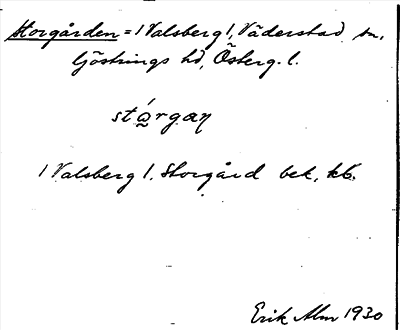 Storgården = 1 Valsberg 1, Väderstad sn,
Göstrings hd, Österg. l.
stǻrgaɳ
1 Valsberg 1. Storgård bek. kb.
Erik Alm 1930